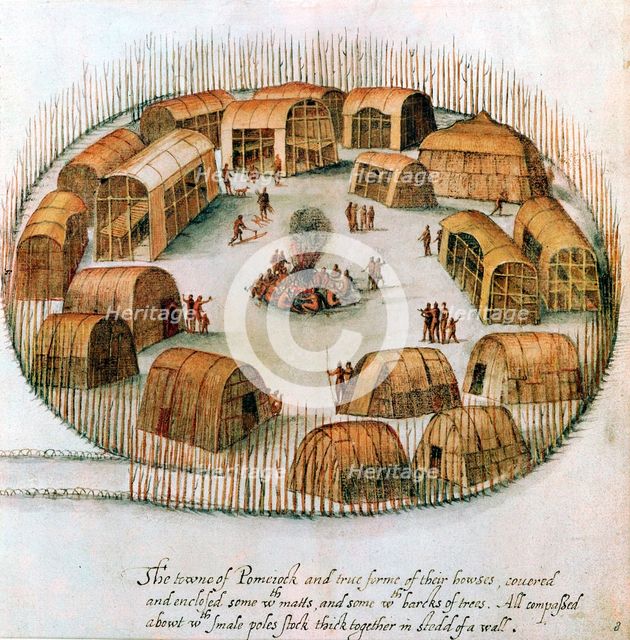 Heritage Heritage
Heritage Heritage
Heritage Heritage
C
Heritage Heritage
The towne of Pomeiock and true forme of their howses, couered
and enclosed some wth matts, and some wth barcks of trees. All compassed
abowt wth smale poles stock thick together in stedd of a wall.
8